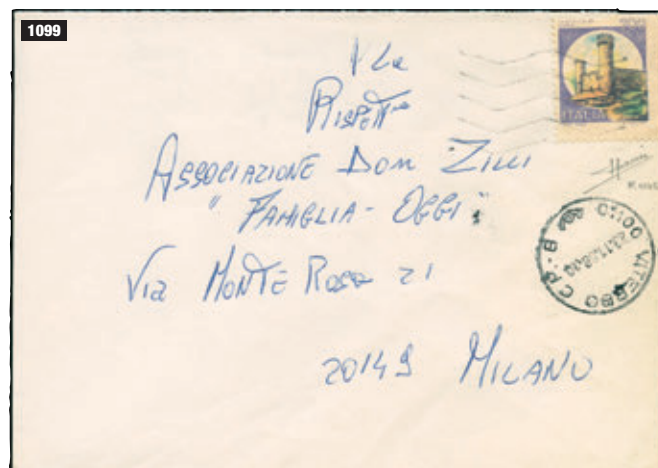 1099
200
ITALIA
Rispett
Associazione Don Zilli
"Famiglia - Oggi"
Via Monte Rosa 21
20149 Milano
VITERBO C.P. - B